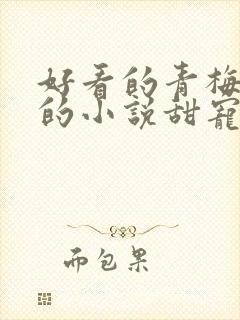 好看的青梅
的小说甜宠
而包果